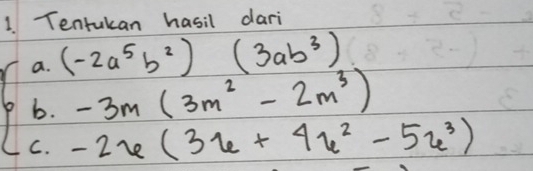 1. Tentukan hasil dari
a. (-2a⁵b²) (3ab³)
b. -3m (3m² - 2m³)
c. -2x (3x + 4x² - 5x³)